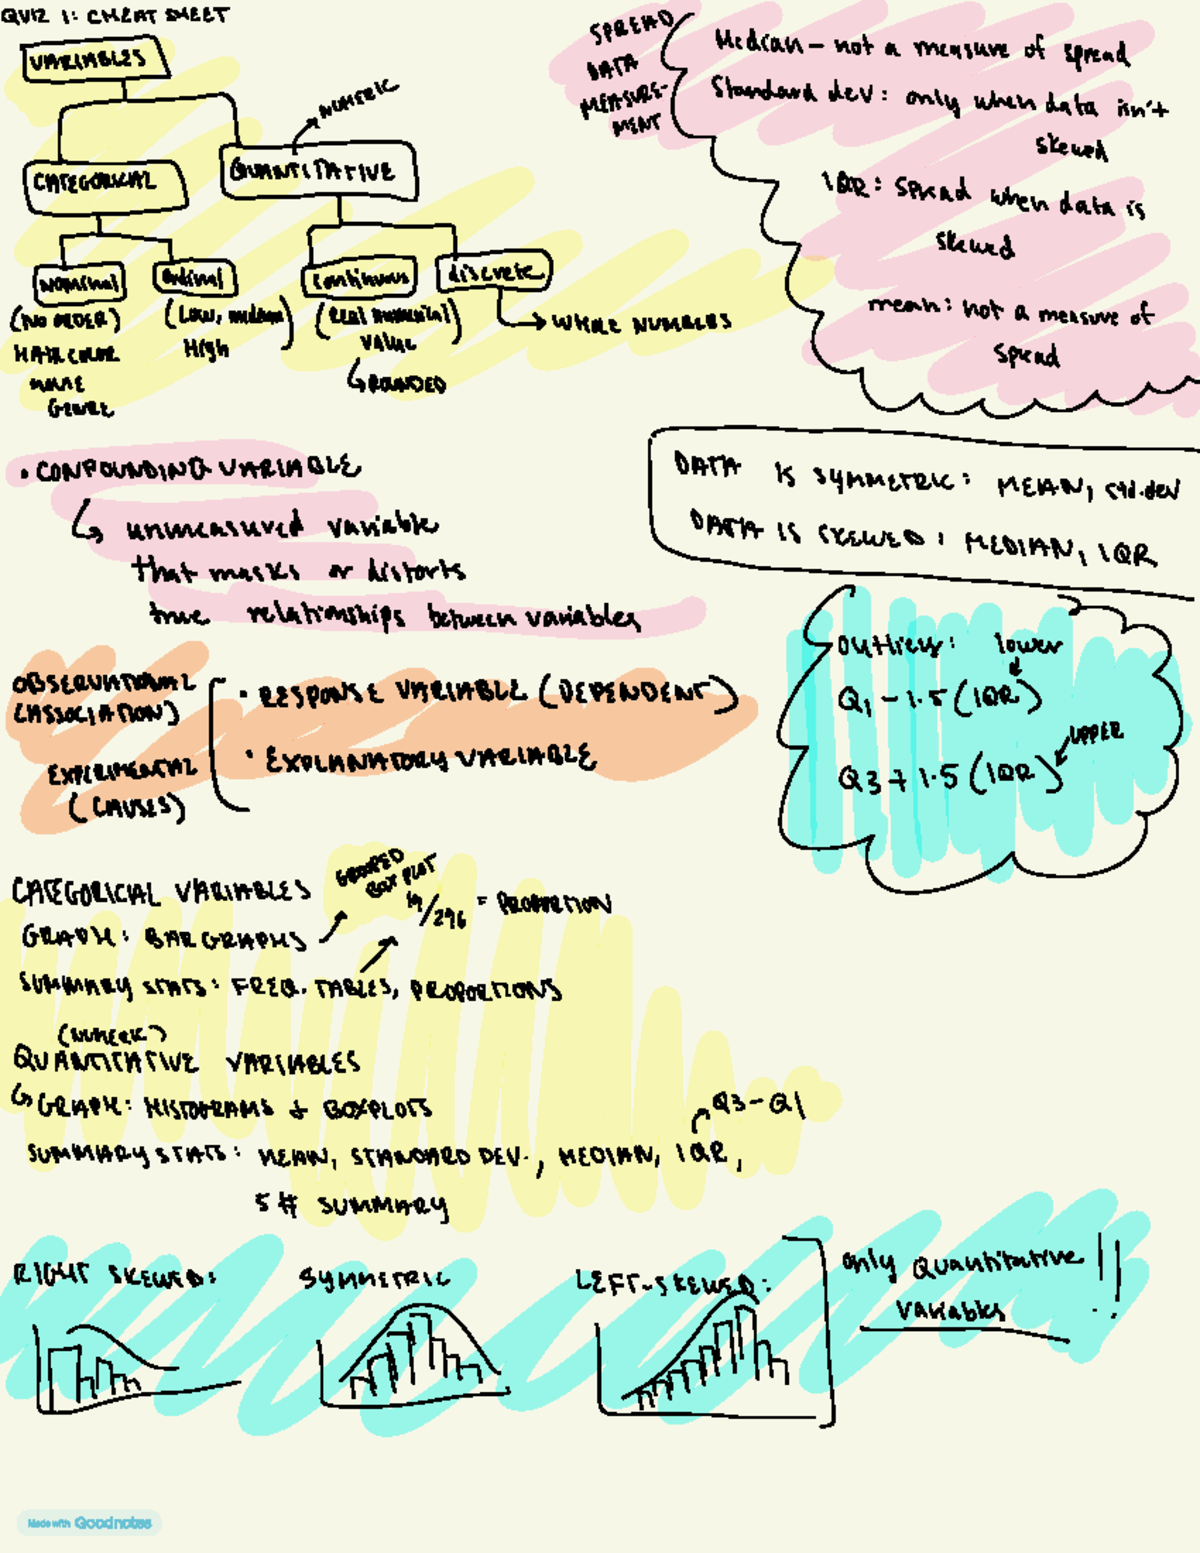 QUIZ 1: CHEAT SHEET
VARIABLES
NUMERIC
CATEGORICAL
QUANTITATIVE
Nominal
Ordinal
continuous
discrete
(NO ORDER)
HAIR COLOR
NAME
GENRE
(Low, medium)
High
(real numerical)
value
ROUNDED
WHOLE NUMBERS
SPREAD
DATA
MEASURE-
MENT
Median - not a measure of spread
Standard dev: only when data isn't
skewed
IQR: Spread when data is
skewed
mean: not a measure of
spread
• CONFOUNDING VARIABLE
unmeasured variable
that masks or distorts
true relationships between variables
DATA IS SYMMETRIC: MEAN, std.dev
DATA IS SKEWED: MEDIAN, IQR
OBSERVATIONAL
(ASSOCIATION)
EXPERIMENTAL
(CAUSES)
• RESPONSE VARIABLE (DEPENDENT)
• EXPLANATORY VARIABLE
outliers: lower
Q1 - 1.5 (IQR)
UPPER
Q3 + 1.5 (IQR)
CATEGORICAL VARIABLES
GRAPH: BAR GRAPHS
GROUPED
BOX PLOT
19/296 = PROPORTION
SUMMARY STATS: FREQ. TABLES, PROPORTIONS
(NUMERIC)
QUANTITATIVE VARIABLES
GRAPH: HISTOGRAMS & BOXPLOTS
Q3-Q1
SUMMARY STATS: MEAN, STANDARD DEV., MEDIAN, IQR,
5 # SUMMARY
RIGHT SKEWED:
SYMMETRIC
LEFT-SKEWED:
only Quantitative !!
Variables
Made with Goodnotes